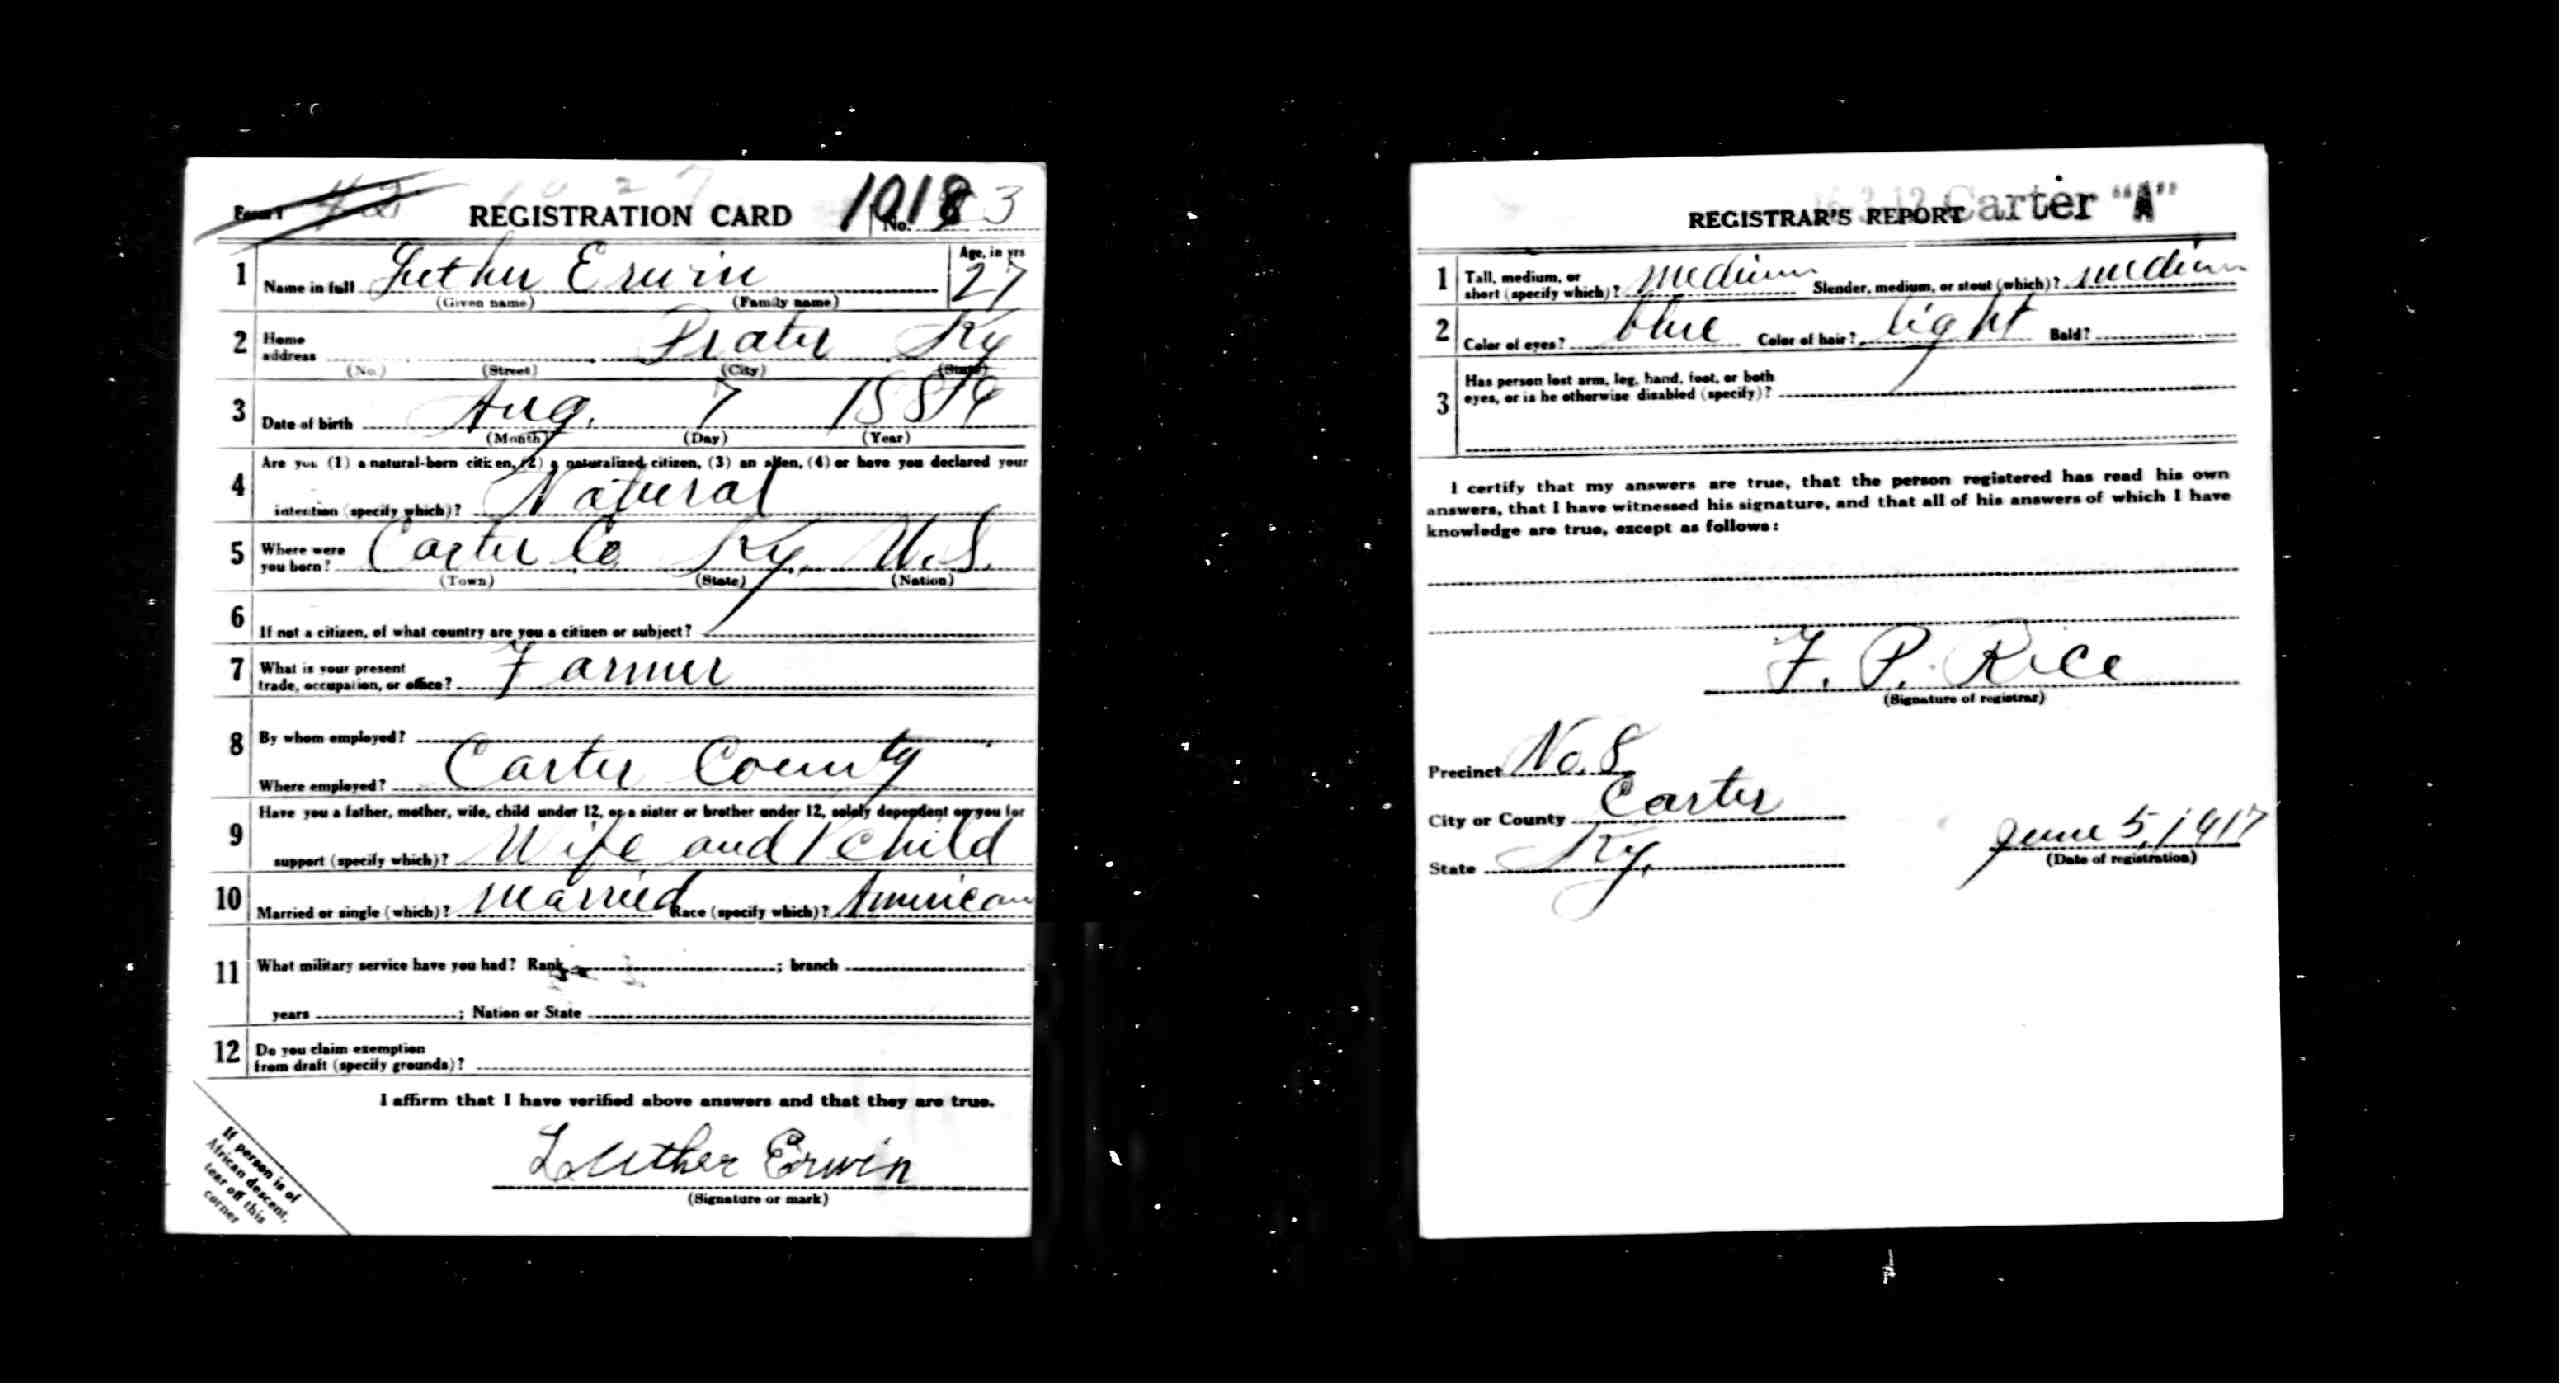 REGISTRATION CARD
No. 3
1 Name in full Luther Erwin Age, in yrs 27
(Given name) (Family name)
2 Home address Prater Ky
(No.) (Street) (City) (State)
3 Date of birth Aug. 7
(Month) (Day) (Year)
4 Are you (1) a natural-born citizen, (2) a naturalized citizen, (3) an alien, (4) or have you declared your
intention (specify which)? Natural
5 Where were you born? Carter Co Ky. U.S.
(Town) (State) (Nation)
6 If not a citizen, of what country are you a citizen or subject?
7 What is your present
trade, occupation, or office? Farmer
8 By whom employed?
Where employed? Carter County
9 Have you a father, mother, wife, child under 12, or a sister or brother under 12, solely dependent on you for
support (specify which)? Wife and 1 child
10 Married or single (which)? Married Race (specify which)? American
11 What military service have you had? Rank ; branch
years ; Nation or State
12 Do you claim exemption
from draft (specify grounds)?
I affirm that I have verified above answers and that they are true.
Luther Erwin
(Signature or mark)
If person is of
African descent,
tear off this
corner
REGISTRAR'S REPORT Carter "A"
1 Tall, medium, or
short (specify which)? medium Slender, medium, or stout (which)? medium
2 Color of eyes? blue Color of hair? light Bald?
3 Has person lost arm, leg, hand, foot, or both
eyes, or is he otherwise disabled (specify)?
I certify that my answers are true, that the person registered has read his own
answers, that I have witnessed his signature, and that all of his answers of which I have
knowledge are true, except as follows:
F. P. Rice
(Signature of registrar)
Precinct No. 8
City or County Carter
State Ky.
June 5, 1917
(Date of registration)